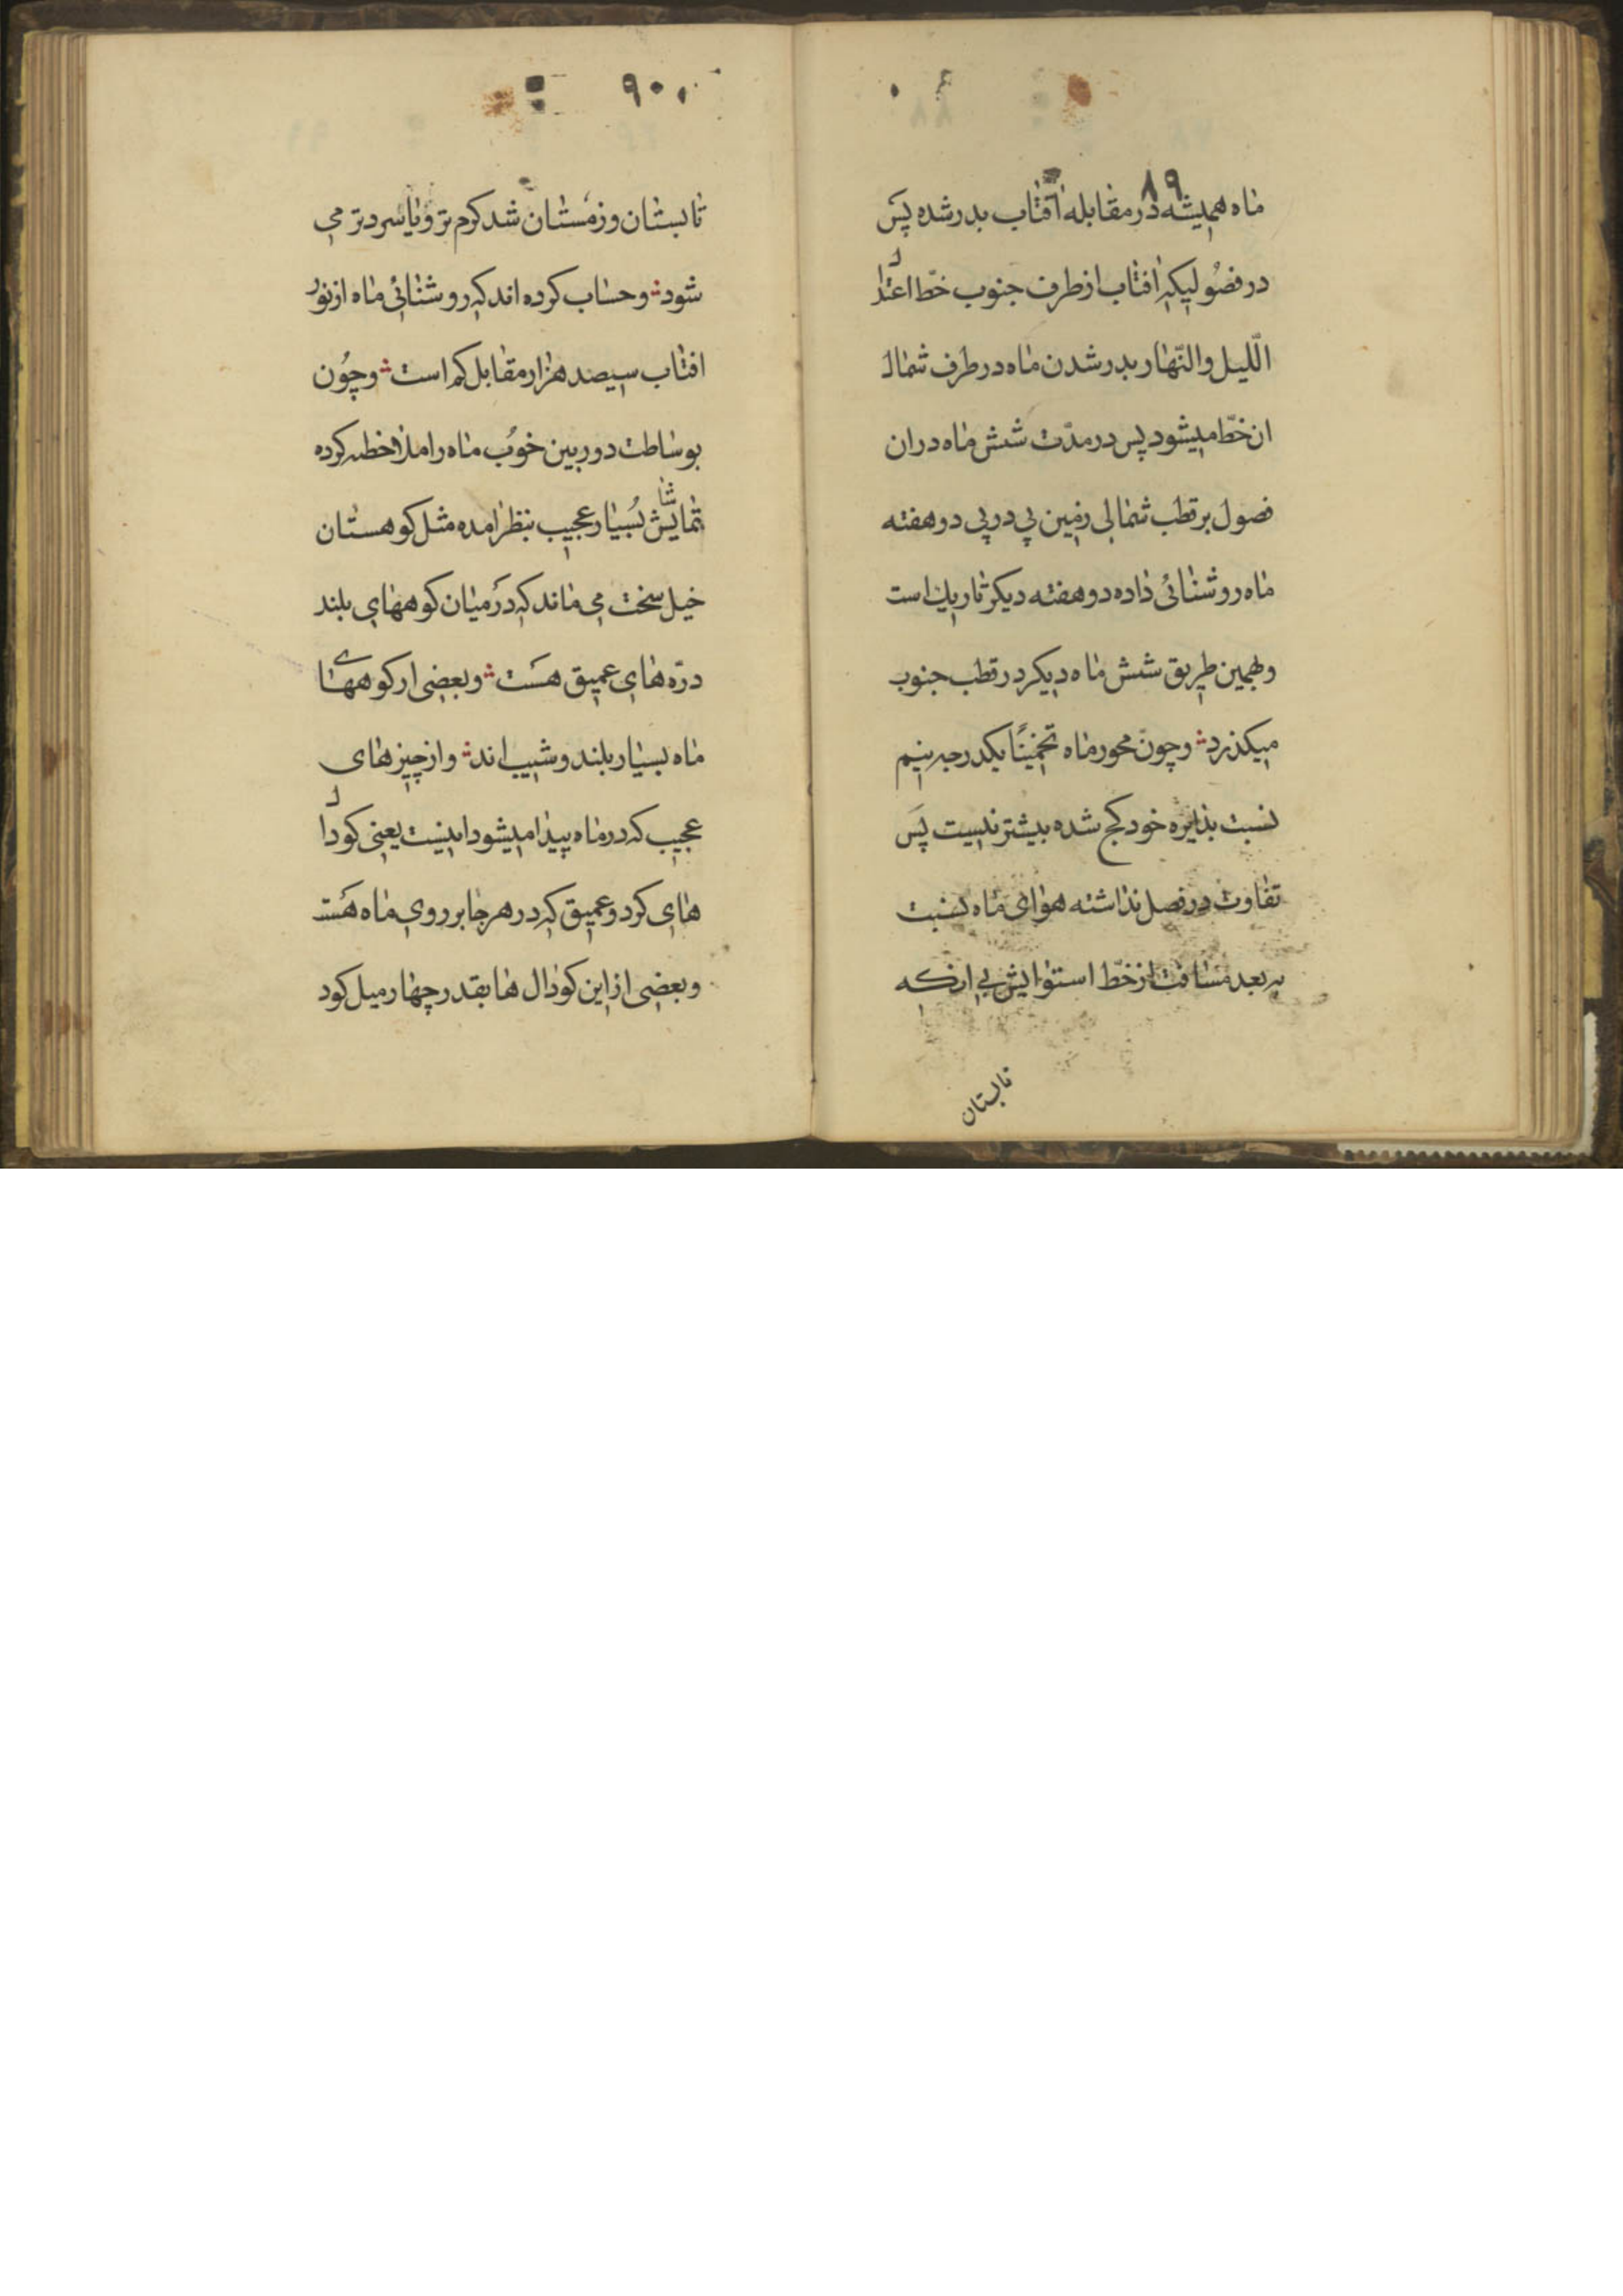 ۸۹
ماه همیشه در مقابله آفتاب بدر شده پس
در فصولیکه افتاب از طرف جنوب خطّ اعتدال
اللّیل والنّهار بدر شدن ماه در طرف شمال
ان خطّ میشود پس در مدّت شش ماه در ان
فصول بر قطب شمالی زمین پی در پی دو هفته
ماه روشنائی داده دو هفته دیکر تاریك است
و بهمین طریق شش ماه دیکر در قطب جنوب
میکذرد و چون محور ماه تخمینًا یکدرجه نیم
نسبت بدایره خود کج شده بیشتر نیست پس
تفاوت در فصل نداشته هوای ماه نسبت
به بعد مسافت از خطّ استوایش بی ارنکه
تابستان
۹۰
تابستان و زمستان شد کرم تر و یا سرد تر می
شود و حساب کرده اند که روشنائی ماه از نور
افتاب سیصد هزار مقابل کم است و چون
بوساطت دوربین خوب ماه را ملاخطه کرده
تماشایش بسیار عجیب بنظر امده مثل کوهستان
خیل سخت می ماند که در میان کوههای بلند
درّه های عمیق هست و بعضی از کوههای
ماه بسیار بلند و شیب اند و از چیزهای
عجیب که در ماه پیدا میشود اینست یعنی کودال
های کرد و عمیق که در هر جا بر روی ماه هست
و بعضی از این کودال ها بقدر چهار میل کود